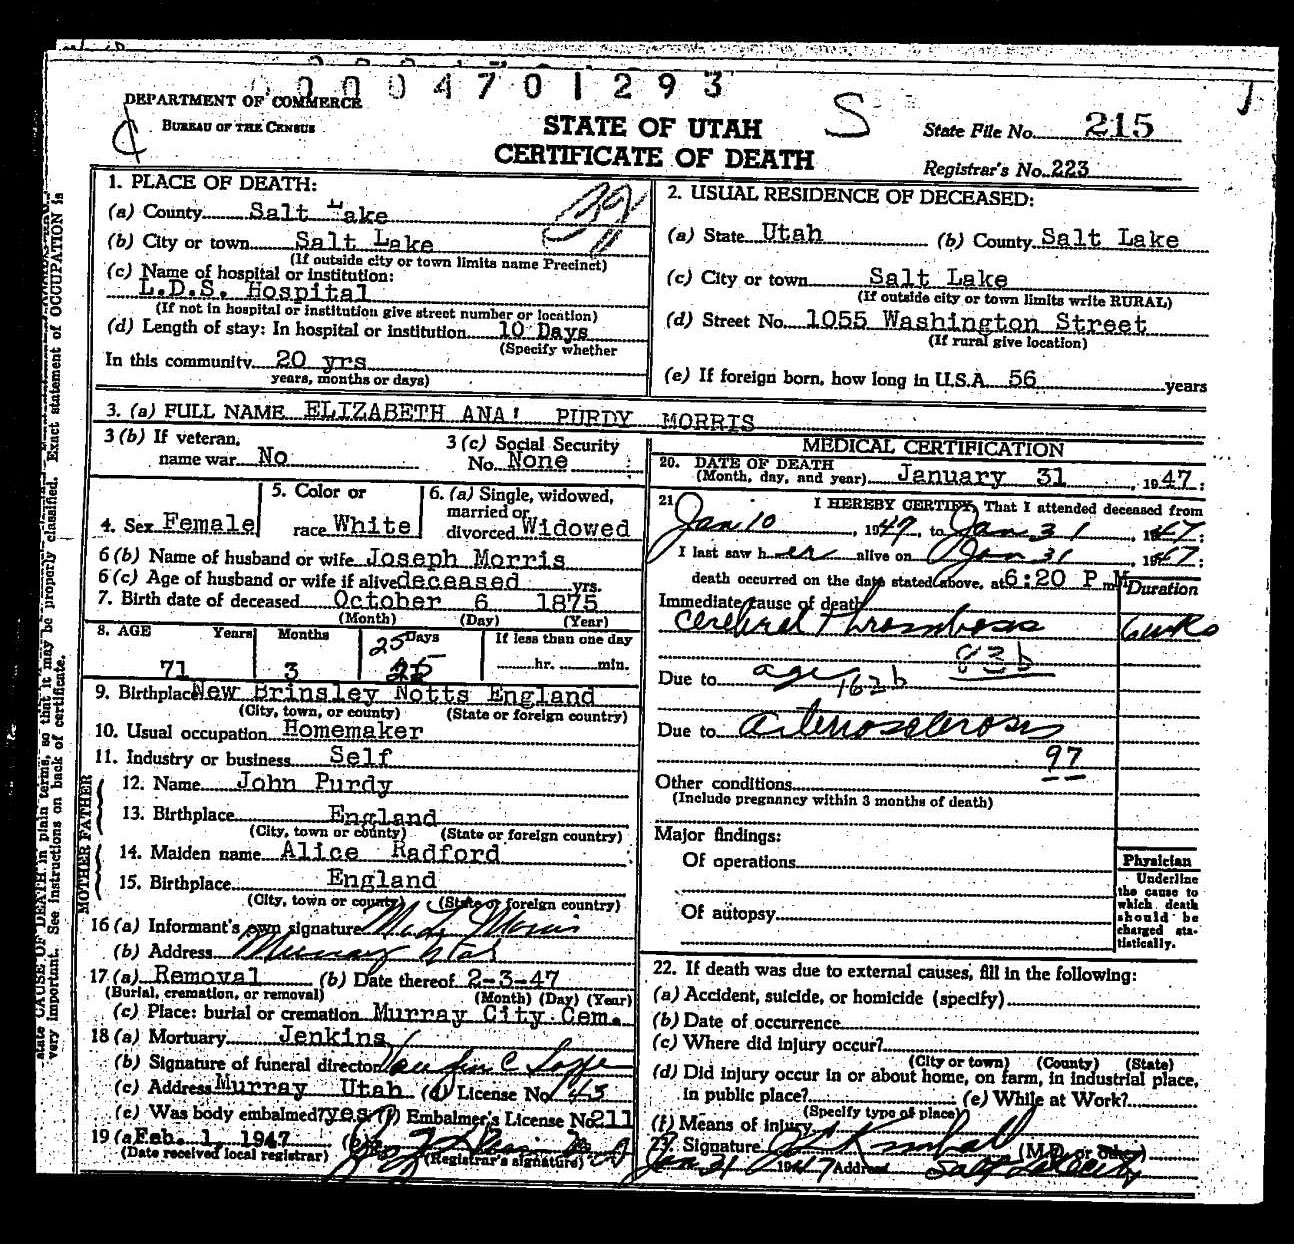 00004701293
DEPARTMENT OF COMMERCE
BUREAU OF THE CENSUS
S
STATE OF UTAH
CERTIFICATE OF DEATH
State File No. 215
Registrar's No. 223
state CAUSE OF DEATH in plain terms, so that it may be properly classified. Exact statement of OCCUPATION is
very important. See instructions on back of certificate.
1. PLACE OF DEATH:
(a) County Salt Lake
(b) City or town Salt Lake
(If outside city or town limits name Precinct)
(c) Name of hospital or institution:
L.D.S. Hospital
(If not in hospital or institution give street number or location)
(d) Length of stay: In hospital or institution 10 Days
(Specify whether
In this community 20 yrs
years, months or days)
2. USUAL RESIDENCE OF DECEASED:
(a) State Utah (b) County Salt Lake
(c) City or town Salt Lake
(If outside city or town limits write RURAL)
(d) Street No. 1055 Washington Street
(If rural give location)
(e) If foreign born, how long in U.S.A. 56 years
3. (a) FULL NAME ELIZABETH ANA' PURDY MORRIS
3 (b) If veteran, name war No
3 (c) Social Security No. None
4. Sex Female
5. Color or race White
6. (a) Single, widowed, married or divorced Widowed
6 (b) Name of husband or wife Joseph Morris
6 (c) Age of husband or wife if alive deceased yrs.
7. Birth date of deceased October 6 1875
(Month) (Day) (Year)
8. AGE Years Months Days If less than one day
25
71 3 25 hr. min.
9. Birthplace New Brinsley Notts England
(City, town, or county) (State or foreign country)
10. Usual occupation Homemaker
11. Industry or business Self
FATHER
12. Name John Purdy
13. Birthplace England
(City, town or county) (State or foreign country)
MOTHER
14. Maiden name Alice Radford
15. Birthplace England
(City, town or county) (State or foreign country)
16 (a) Informant's own signature Morris
(b) Address Murray Utah
17 (a) Removal (b) Date thereof 2-3-47
(Burial, cremation, or removal) (Month) (Day) (Year)
(c) Place: burial or cremation Murray City Cem.
18 (a) Mortuary Jenkins
(b) Signature of funeral director
(c) Address Murray Utah (d) License No.
(e) Was body embalmed? yes (f) Embalmer's License No. 211
19 (a) Feb. 1, 1947 (b)
(Date received local registrar) (Registrar's signature)
MEDICAL CERTIFICATION
20. DATE OF DEATH
(Month, day, and year) January 31, 1947;
21 I HEREBY CERTIFY, That I attended deceased from
Jan 10, 1947, to Jan 31, 1947;
I last saw her alive on Jan 31, 1947;
death occurred on the date stated above, at 6:20 P m M
Duration
Immediate cause of death
Cerebral Thrombosis 6 wks
83b
Due to age
162b
Due to Arteriosclerosis
97
Other conditions
(Include pregnancy within 3 months of death)
Major findings:
Of operations
Of autopsy
Physician
Underline
the cause to
which death
should be
charged sta-
tistically.
22. If death was due to external causes, fill in the following:
(a) Accident, suicide, or homicide (specify)
(b) Date of occurrence
(c) Where did injury occur?
(City or town) (County) (State)
(d) Did injury occur in or about home, on farm, in industrial place,
in public place? (e) While at Work?
(Specify type of place)
(f) Means of injury
23. Signature Kimball (M.D. or other)
Jan 31 1947 Address Salt Lake City